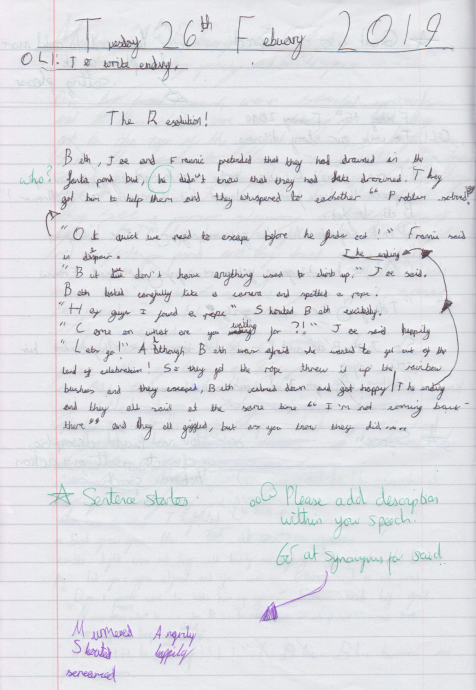 Tuesday 26th Febuary 2019
O L I : I c write ending.
The Resolution!
Beth, Joe and Frannie pretended that they had drowned in the
who?
fanta pond but, he didn't know that they had fake drowned. They
got him to help them and they whispered to eachother " Problem solved!"
" Ok quick we need to escape before he finds out !" Frannie said
in dispair.
The ending
" But don't have anything used to climb up," Joe said.
Beth looked carefully like a camera and spotted a rope.
" Hey guys I found a rope" Shouted Beth excitedly.
" Come on what are you waiting for ?!" Joe said happily
" Lets go!" Although Beth was afraid she wanted to get out of the
land of celebration! So they got the rope threw it up the rainbow
bushes and they escaped, Beth calmed down and got happy / The ending
and they all said at the same time " I'm not coming back
there" and they all giggled, but as you know they did....
Sentence starter.
Please add description
within your speech.
at synonyms for said
Murmered Angrily
Shouted happily
screamed